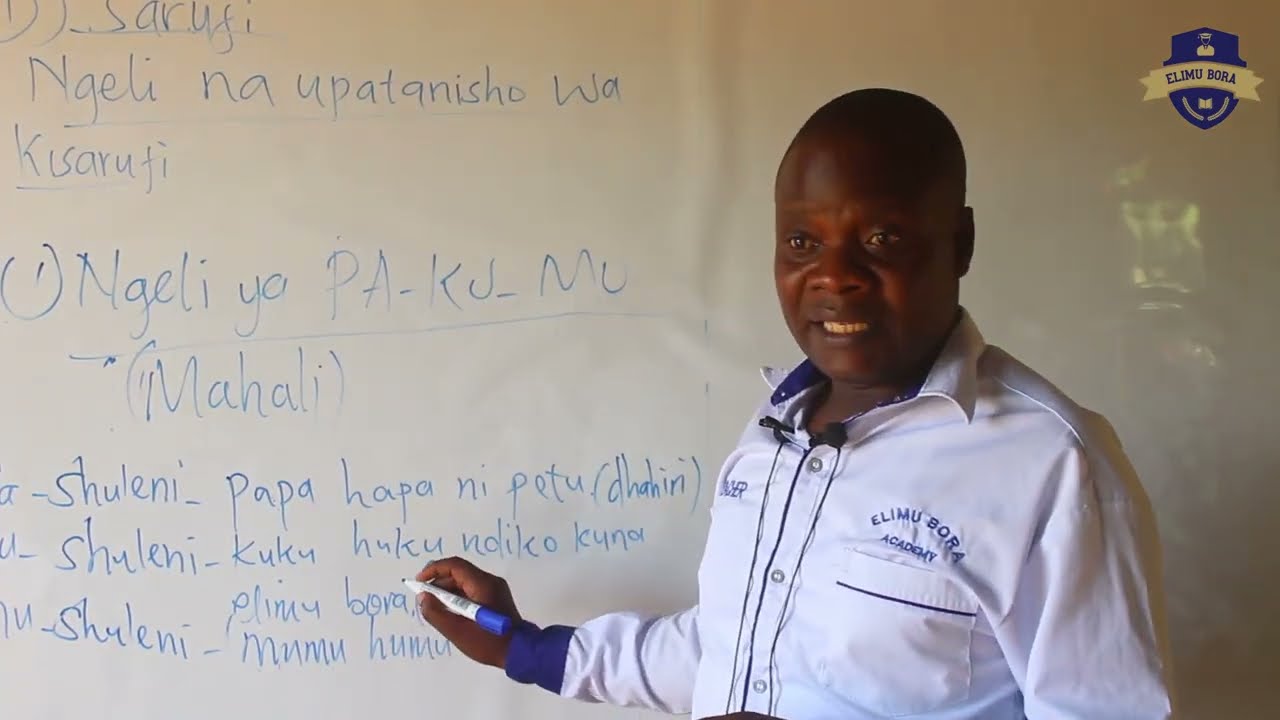 D) Sarufi
Ngeli na upatanisho wa
Kisarufi
(1) Ngeli ya PA-KU-MU
(Mahali)
Shuleni - papa hapa ni petu (dhahiri)
Shuleni - kuku huku ndiko kuna
elimu bora
Shuleni - mumu humu
ELIMU BORA
ELIMU BORA
ACADEMY